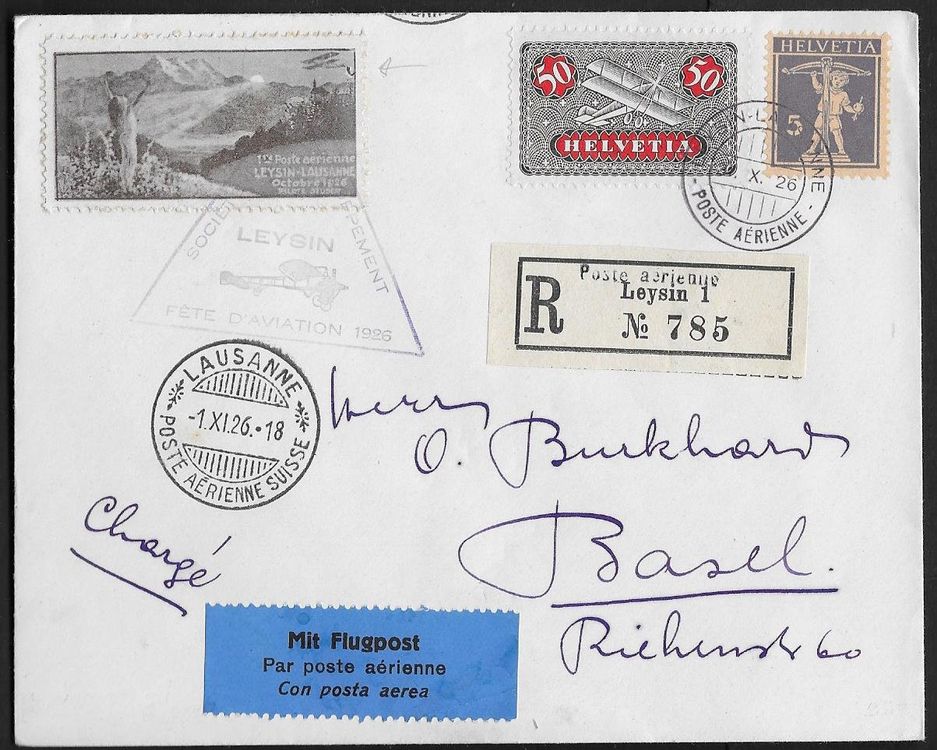 1re Poste aérienne
LEYSIN-LAUSANNE
Octobre 1926
HELVETIA
50 50
HELVETIA
5
POSTE AÉRIENNE
X. 26
LEYSIN
FÊTE D'AVIATION 1926
R
Poste aérienne
Leysin 1
№ 785
LAUSANNE
-1.XI.26.-18
POSTE AÉRIENNE SUISSE
Herrn
O. Burkhard
Basel.
Riehenstr 60
Chargé
Mit Flugpost
Par poste aérienne
Con posta aerea